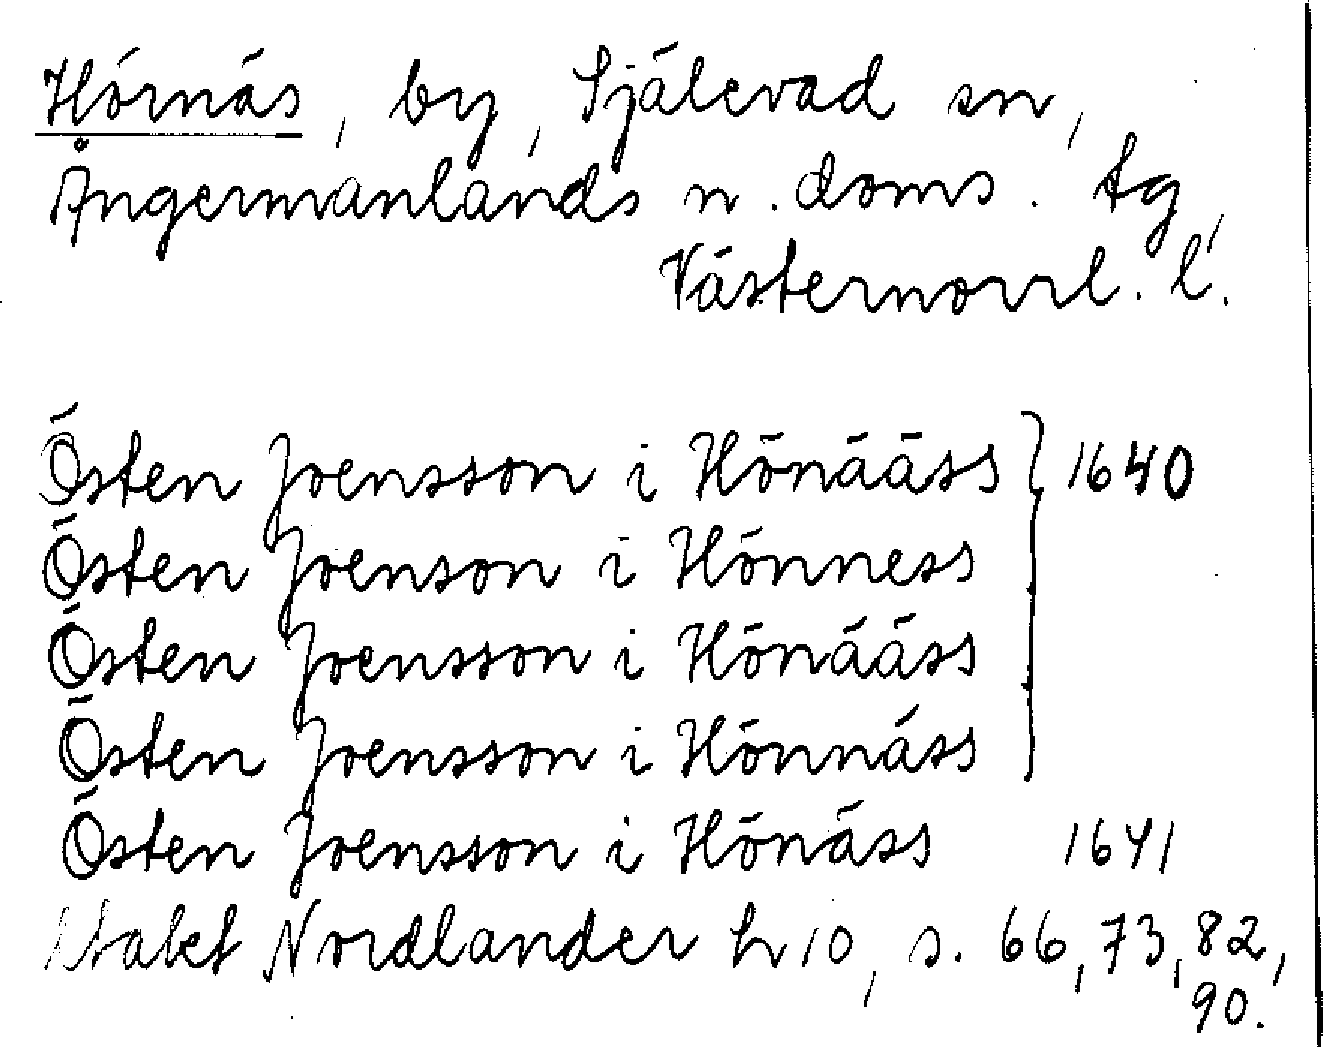 Hörnäs, by, Själevad sn,
Ångermanlands n. doms. tg,
Västernorrl. l.
Östen Joensson i Hönääss } 1640
Östen Joenson i Hönness
Östen Joensson i Hönääss
Östen Joensson i Hönnäss
Östen Joensson i Hönäss 1641
Nordlander h 10, s. 66, 73, 82,
90.